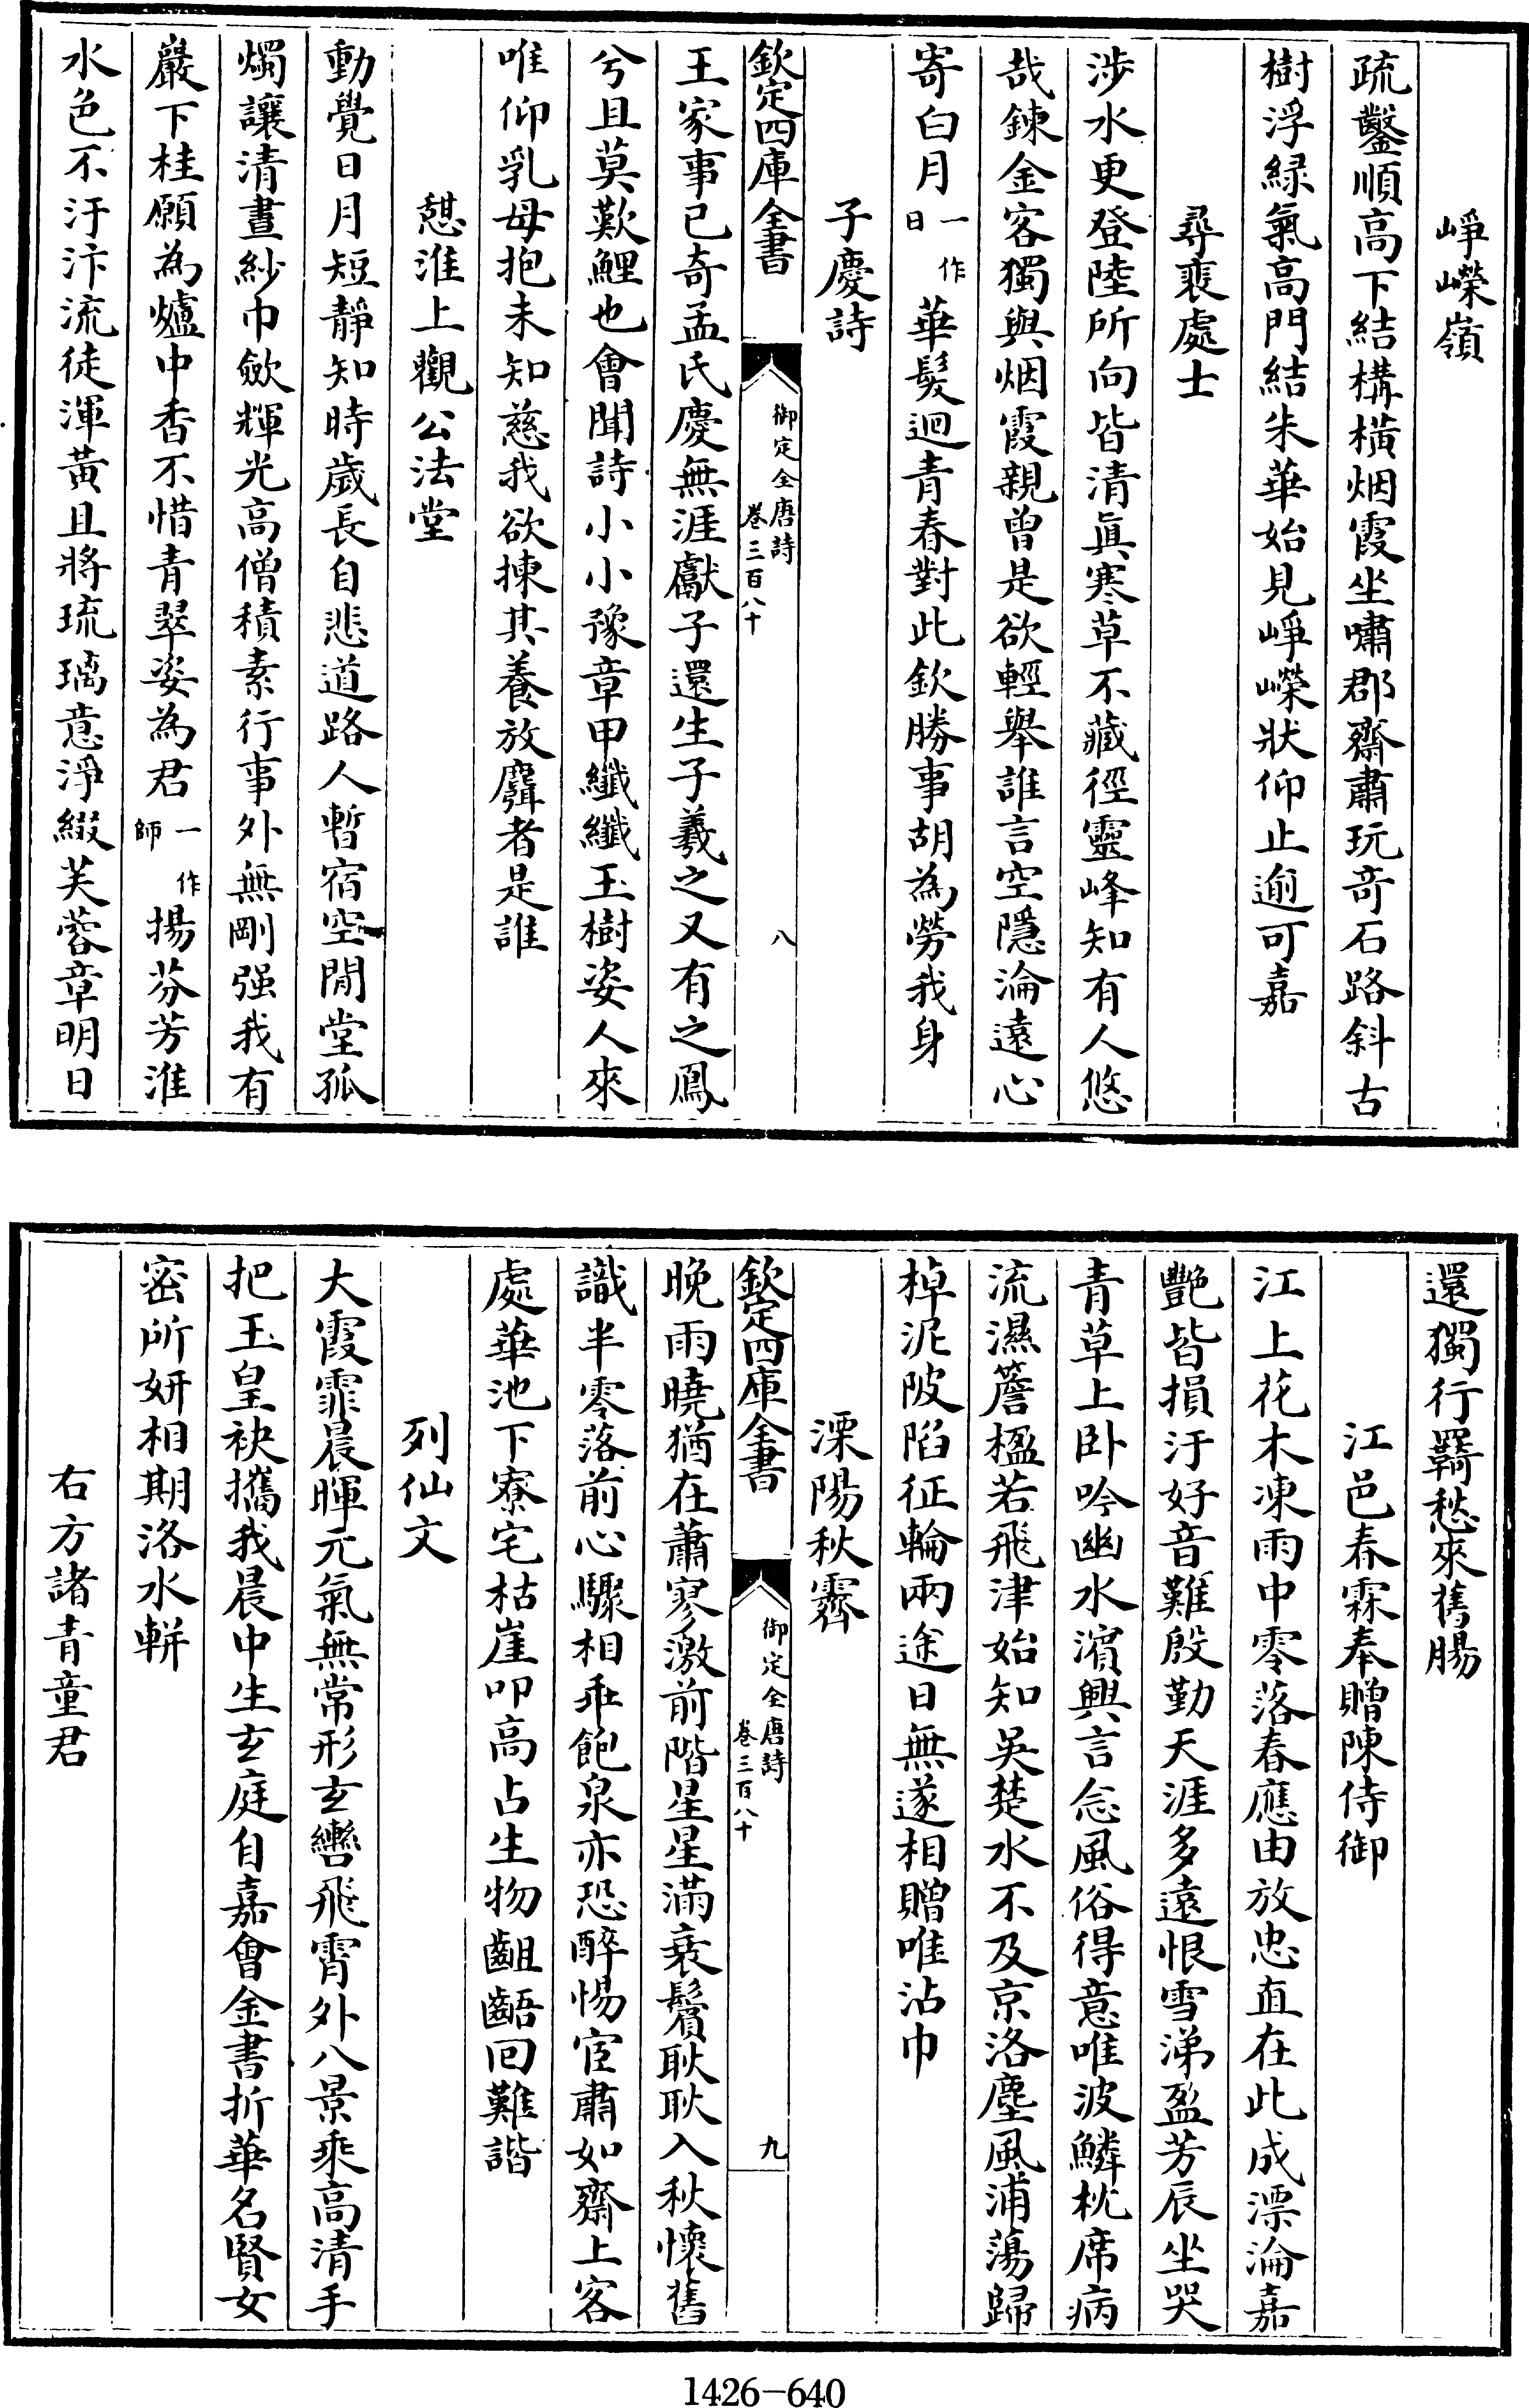 崢嶸嶺
疏鑿順高下結構橫烟霞坐嘯郡齋肅玩奇石路斜古
樹浮綠氣高門結朱華始見崢嶸狀仰止逾可嘉
尋裴處士
涉水更登陸所向皆清真寒草不藏徑靈峰知有人悠
哉鍊金客獨與烟霞親曾是欲輕舉誰言空隱淪遠心
寄白月一作日華髮迴青春對此欽勝事胡為勞我身
子慶詩
欽定四庫全書
御定全唐詩
卷三百八十
八
王家事已奇孟氏慶無涯獻子還生子羲之又有之鳳
兮且莫歎鯉也會聞詩小小豫章甲纖纖玉樹姿人來
唯仰乳母抱未知慈我欲揀其養放麛者是誰
憩淮上觀公法堂
動覺日月短靜知時歲長自悲道路人暫宿空閒堂孤
燭讓清晝紗巾斂輝光高僧積素行事外無剛强我有
巖下桂願為爐中香不惜青翠姿為君一作師揚芬芳淮
水色不汙汴流徒渾黃且將琉璃意淨綴芙蓉章明日
還獨行羇愁來舊腸
江邑春霖奉贈陳侍御
江上花木凍雨中零落春應由放忠直在此成漂淪嘉
艷皆損汙好音難殷勤天涯多遠恨雪涕盈芳辰坐哭
青草上卧吟幽水濱興言念風俗得意唯波鱗枕席病
流濕簷楹若飛津始知吳楚水不及京洛塵風浦蕩歸
棹泥陂陷征輪兩途日無遂相贈唯沾巾
溧陽秋霽
欽定四庫全書
御定全唐詩
卷三百八十
九
晚雨曉猶在蕭寥激前階星星滿衰鬢耿耿入秋懷舊
識半零落前心驟相乖飽泉亦恐醉惕宦肅如齋上客
處華池下寮宅枯崖叩高占生物齟齬回難諧
列仙文
大霞霏晨暉元氣無常形玄轡飛霄外八景乘高清手
把玉皇袂攜我晨中生玄庭自嘉會金書折華名賢女
密所妍相期洛水輧
右方諸青童君
1426-640